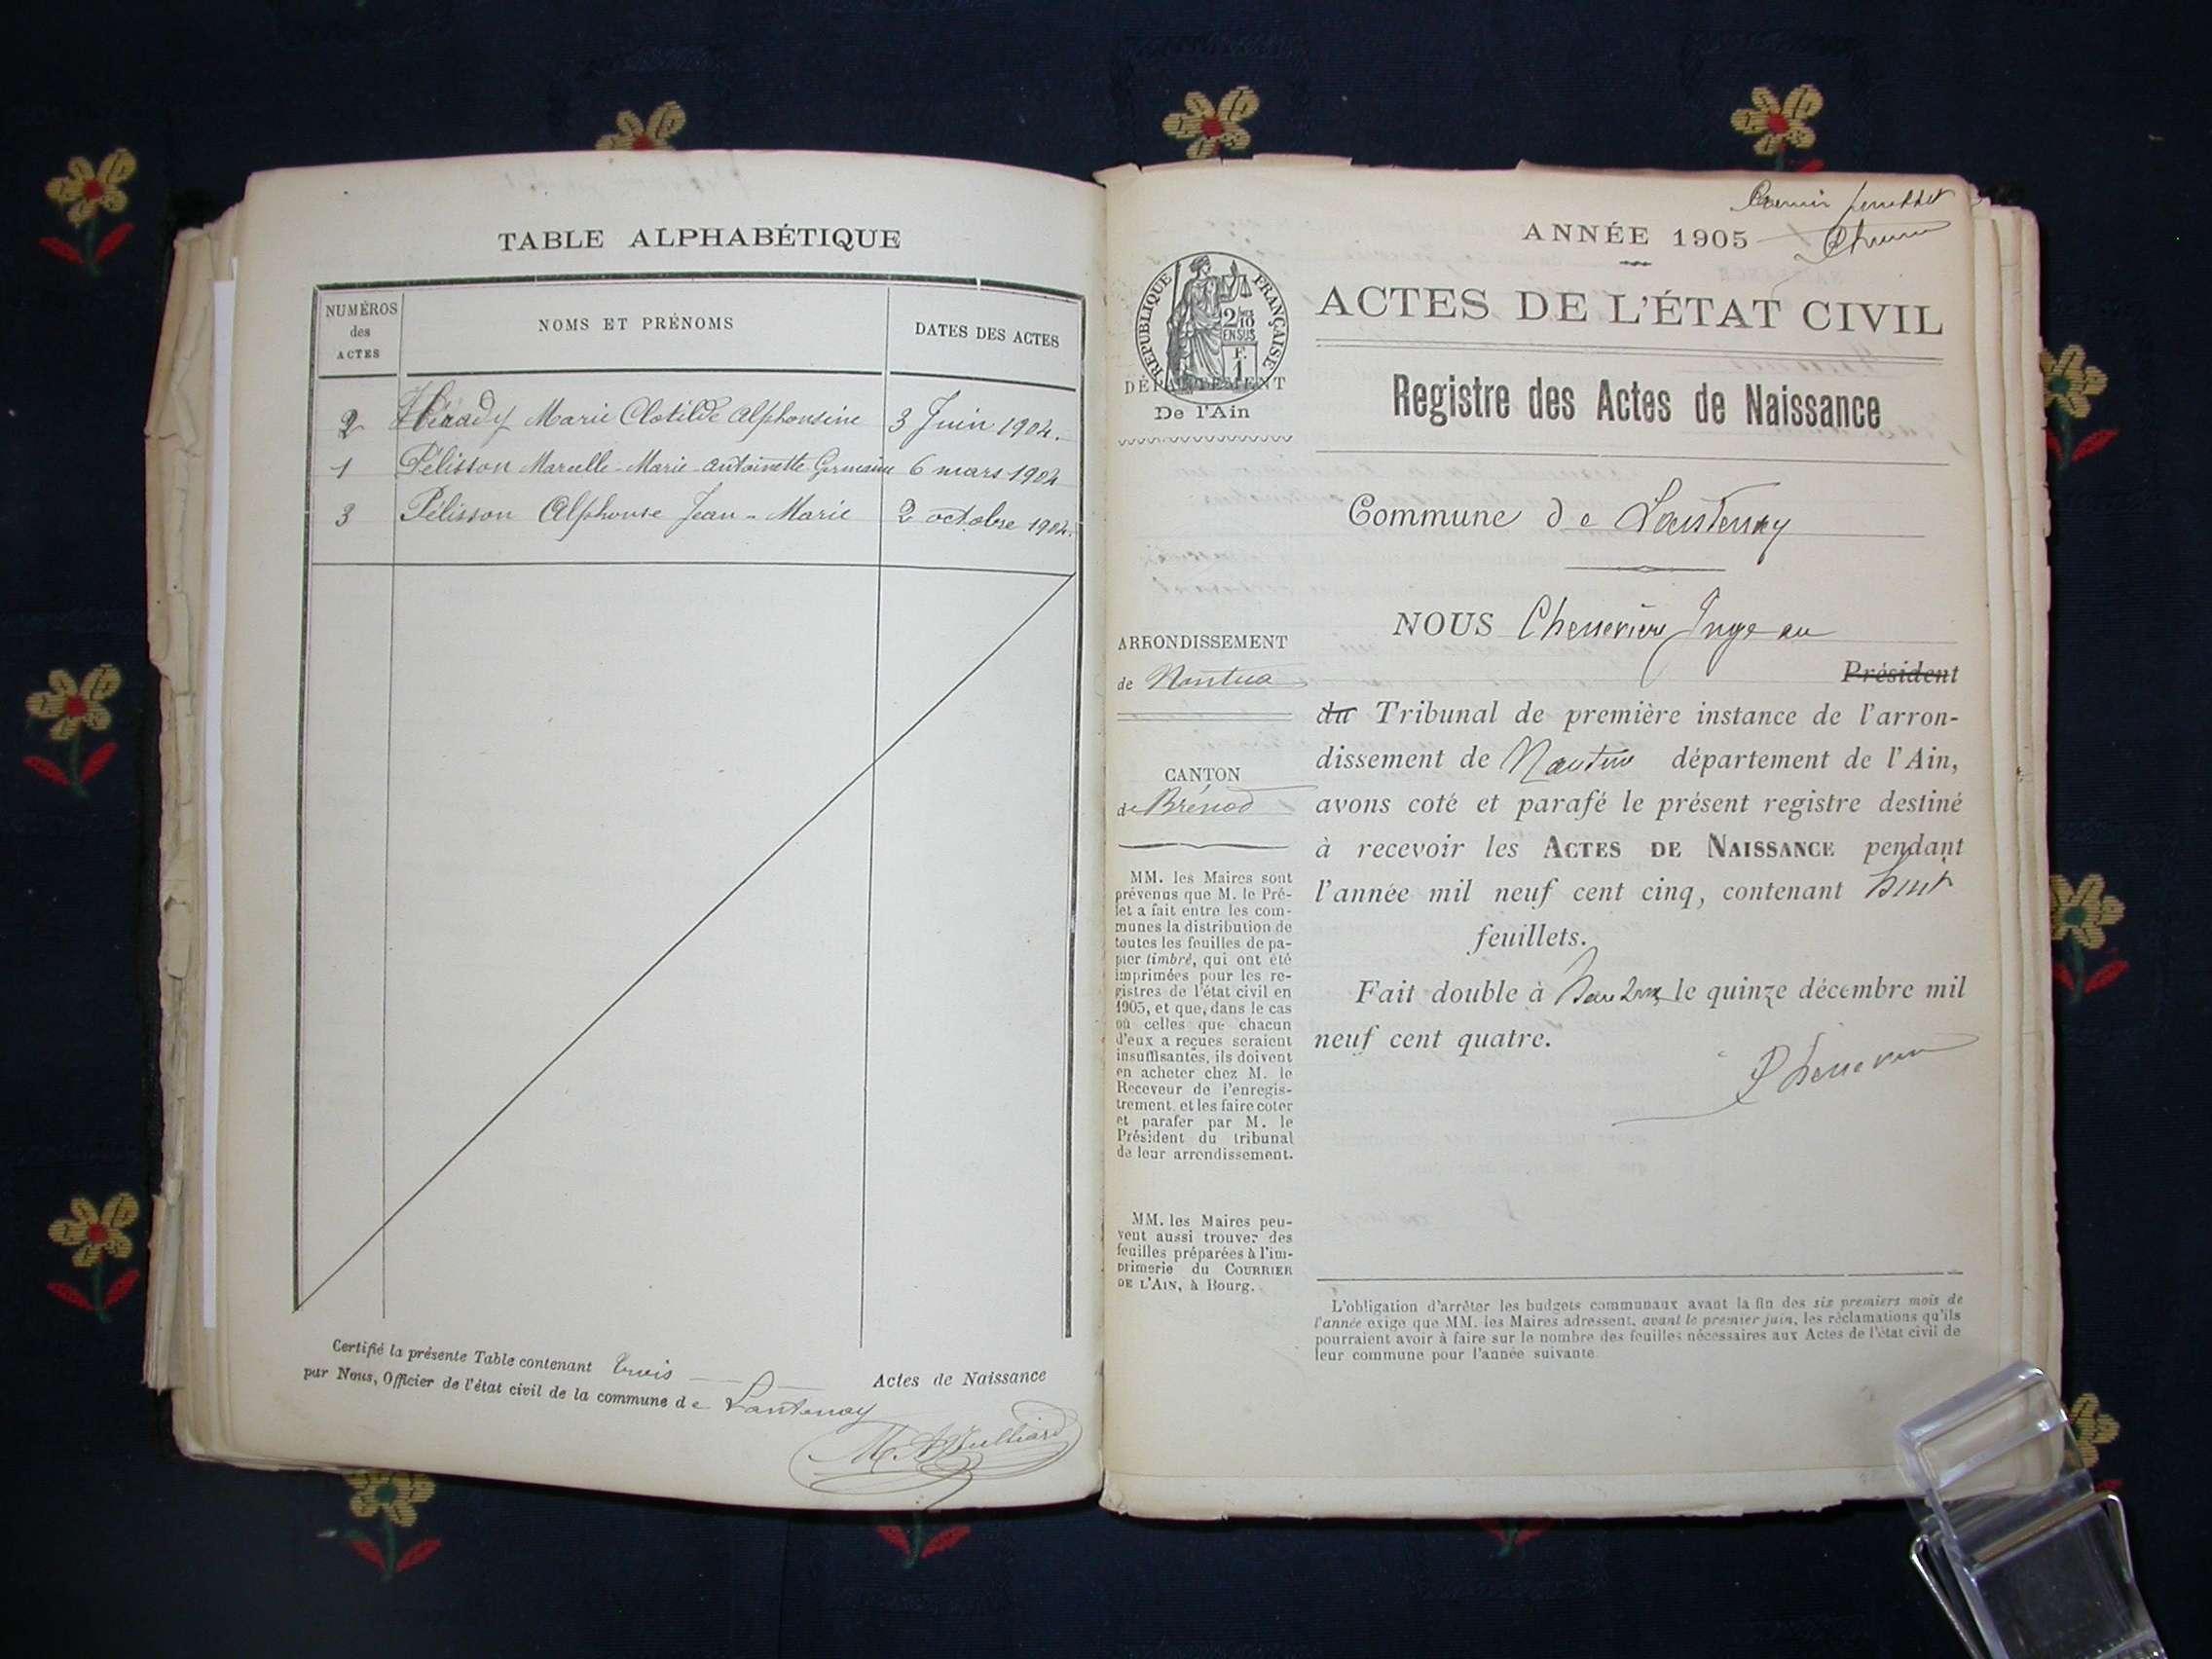 TABLE ALPHABÉTIQUE
NUMÉROS
des
ACTES
NOMS ET PRÉNOMS
DATES DES ACTES
2 Marie Clotilde Alphonsine 3 Juin 1904.
1 Pélisson Marcelle-Marie-Antoinette Germaine 6 mars 1904
3 Pélisson Alphonse Jean-Marie 2 octobre 1904.
Certifié la présente Table contenant trois Actes de Naissance
par Nous, Officier de l'état civil de la commune de Lantenay
Premier feuillet
ANNÉE 1905
RÉPUBLIQUE FRANÇAISE
2/10
EN SUS
F.
1
ACTES DE L'ÉTAT CIVIL
DÉPARTEMENT
De l'Ain
Registre des Actes de Naissance
Commune de Lantenay
ARRONDISSEMENT
de Nantua
CANTON
de Brénod
MM. les Maires sont
prévenus que M. le Pré-
fet a fait entre les com-
munes la distribution de
toutes les feuilles de pa-
pier timbré, qui ont été
imprimées pour les re-
gistres de l'état civil en
1905, et que, dans le cas
où celles que chacun
d'eux a reçues seraient
insuffisantes, ils doivent
en acheter chez M. le
Receveur de l'enregis-
trement et les faire coter
et parafer par M. le
Président du tribunal
de leur arrondissement.
MM. les Maires peu-
vent aussi trouver des
feuilles préparées à l'im-
primerie du COURRIER
DE L'AIN, à Bourg.
NOUS Chenevière Juge au
Président
du Tribunal de première instance de l'arron-
dissement de Nantua département de l'Ain,
avons coté et parafé le présent registre destiné
à recevoir les ACTES DE NAISSANCE pendant
l'année mil neuf cent cinq, contenant huit
feuillets.
Fait double à Nantua, le quinze décembre mil
neuf cent quatre.
L'obligation d'arrêter les budgets communaux avant la fin des six premiers mois de
l'année exige que MM. les Maires adressent, avant le premier juin, les réclamations qu'ils
pourraient avoir à faire sur le nombre des feuilles nécessaires aux Actes de l'état civil de
leur commune pour l'année suivante